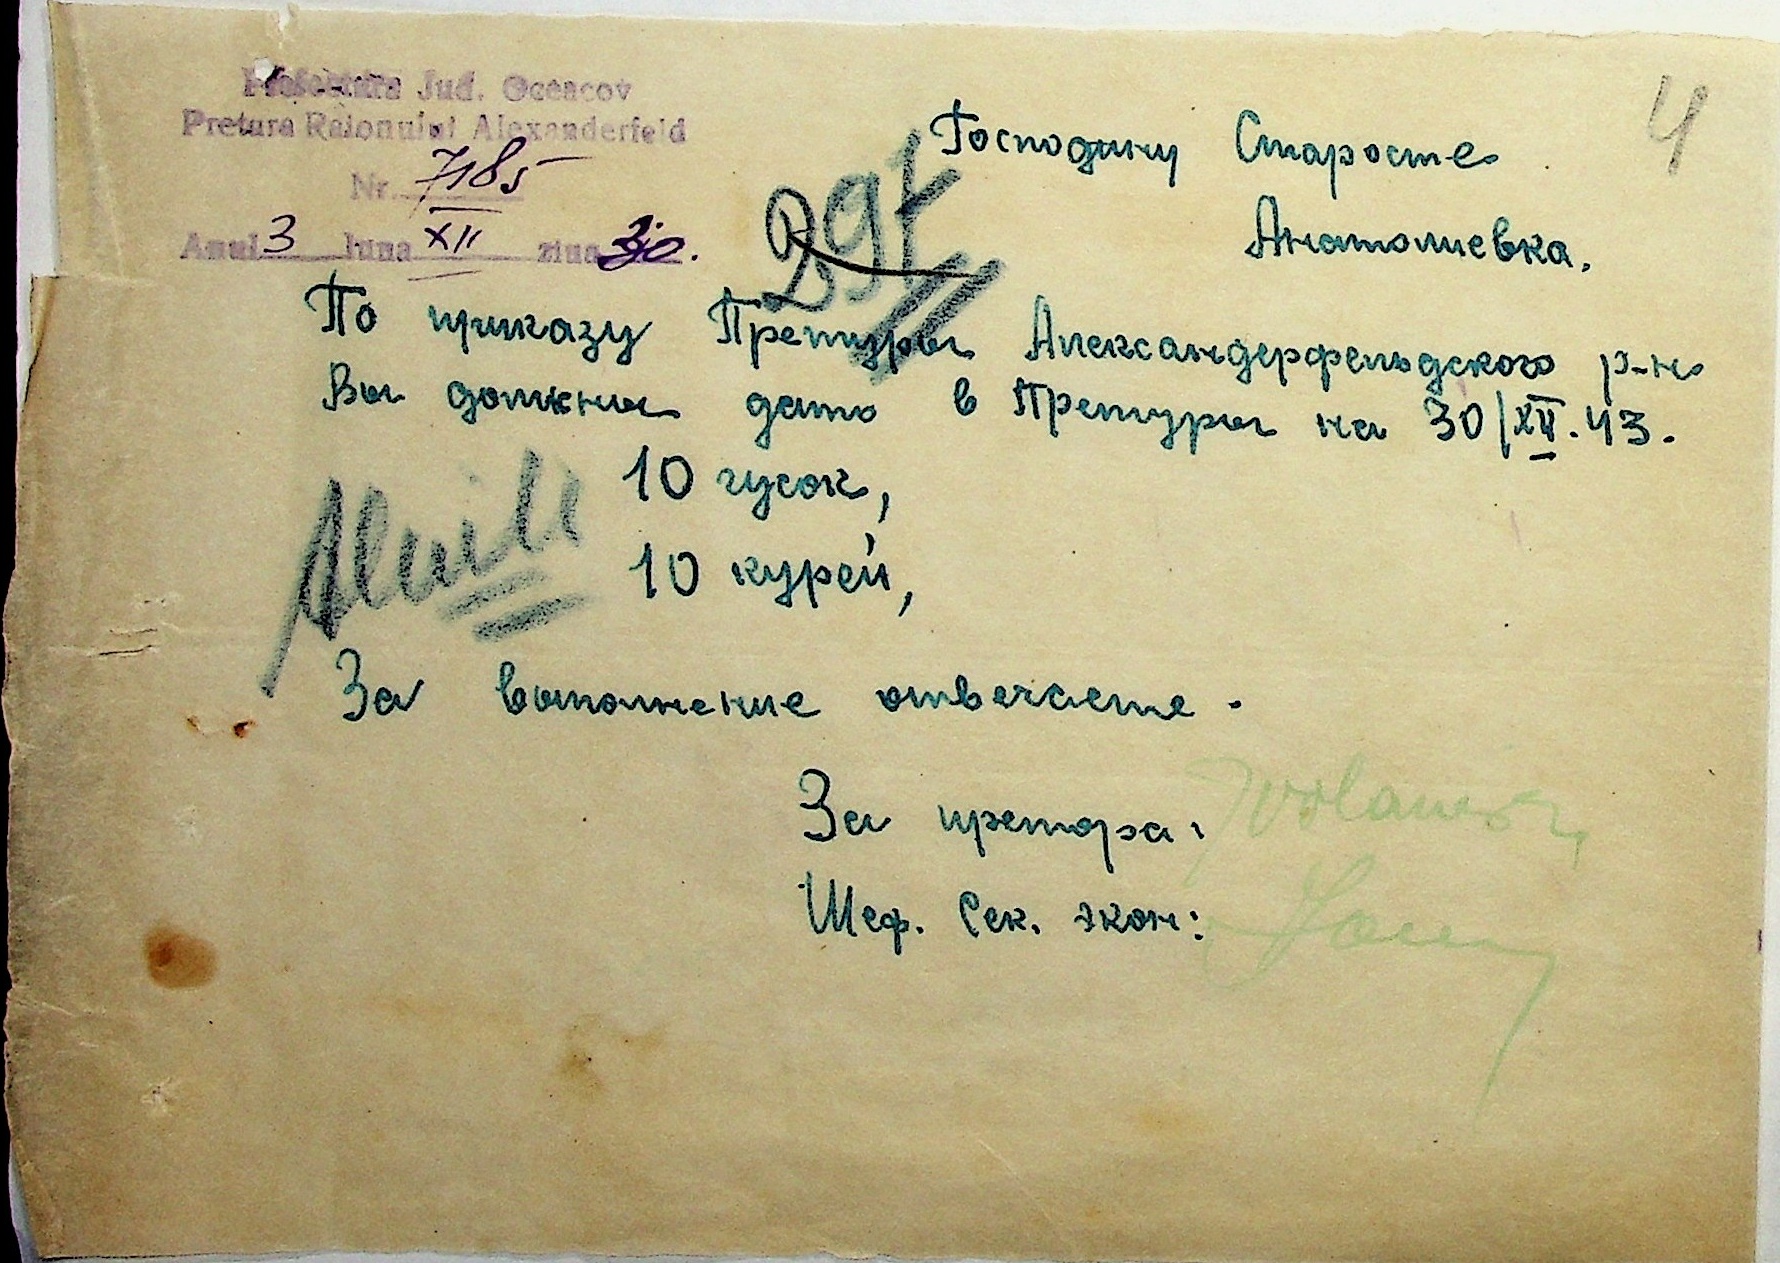 Prefectura Jud. Oceacov
Pretura Raionului Alexanderfeld
Nr. 7185
Anul 3 luna XII ziua 30.
4
Господину Старосте
Анатолиевка.
По приказу Претуры Александерфельдского р-на
Вы должны дать в Претуры на 30/XII.43.
10 гусок,
10 курей,
За выполнение отвечаете.
За претора:
Шеф. Сек. экон: